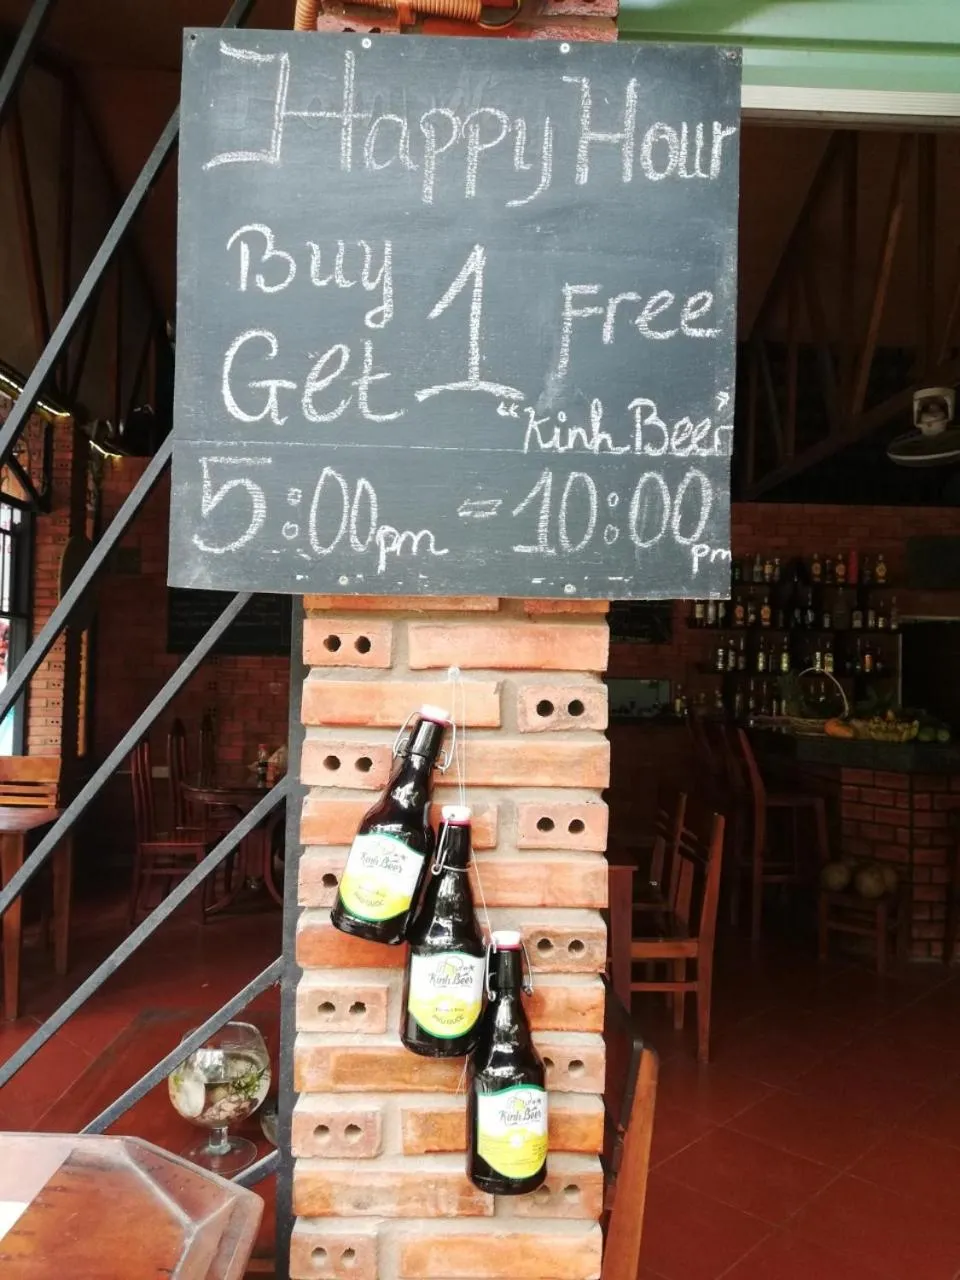 Happy Hour
Buy
Get 1 Free
"Kinh Beer"
5:00pm - 10:00pm
Kinh Beer
PHU QUOC
Kinh Beer
PHU QUOC
Kinh Beer